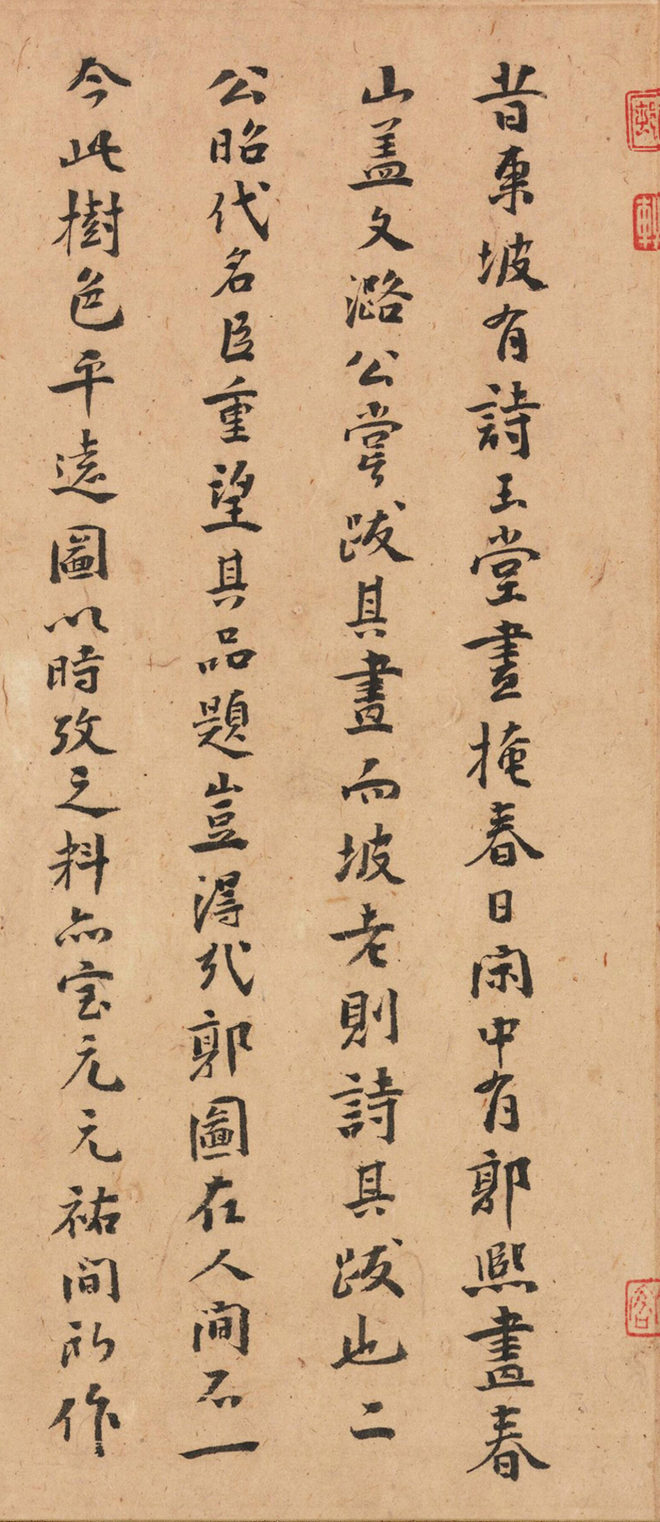 昔東坡有詩玉堂晝掩春日閑中有郭熙畫春
山盖文潞公嘗跋其畫而坡老則詩其跋也二
公昭代名臣重望其品題豈得代郭圖在人間不一
今此樹色平遠圖以時攷之料亦宝元元祐間所作